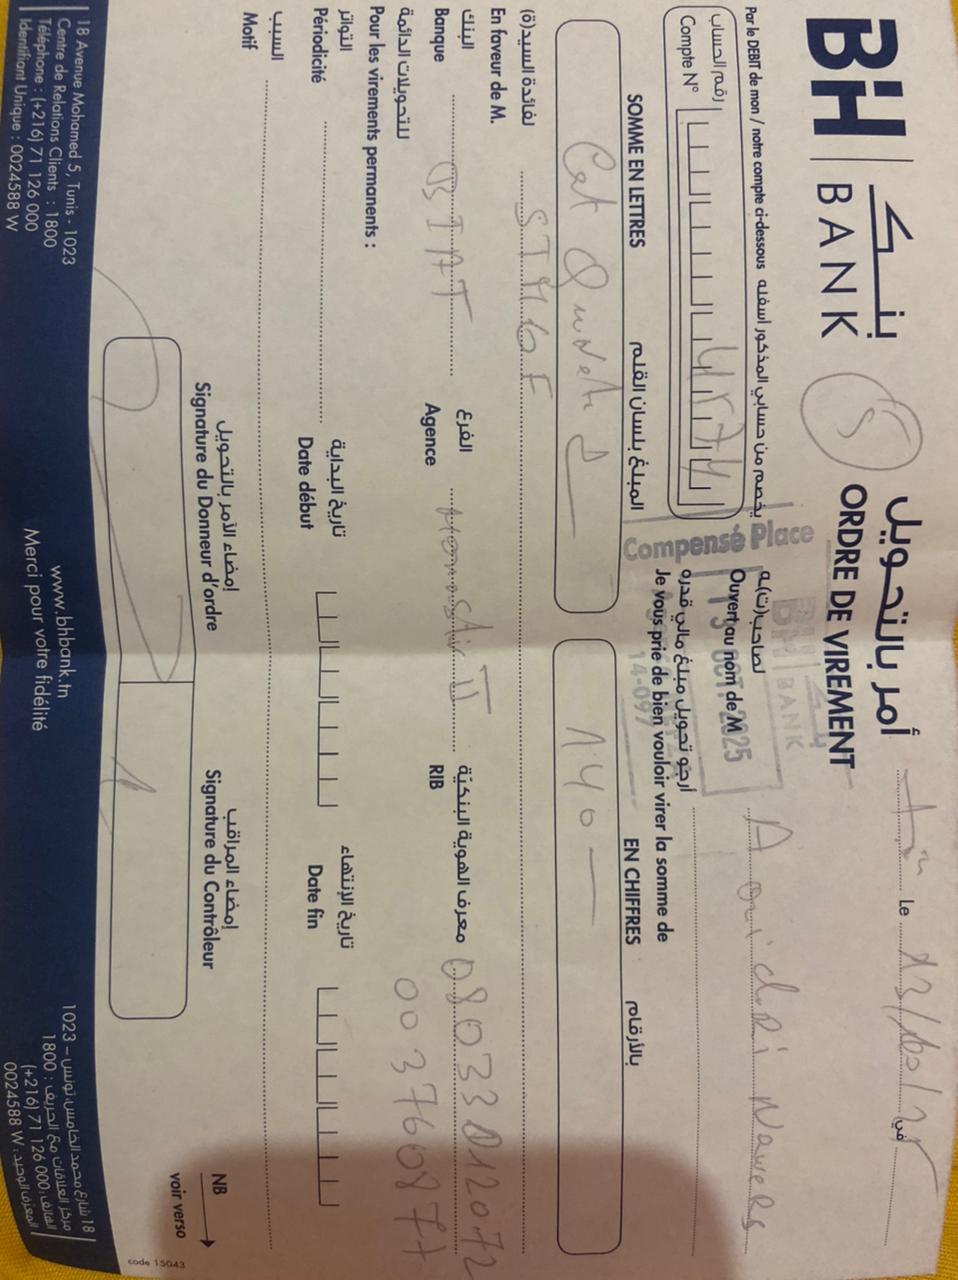 BH BANK بنك
أمر بالتحويل
ORDRE DE VIREMENT
Le 13/10/25 في
Par le DEBIT de mon / notre compte ci-dessous يخصم من حسابي المذكور أسفله
رقم الحساب
Compte N°
لصاحب(ت)ه
Ouvert au nom de M
Compensé Place
BH BANK بنك
OCT. 2025
14-097
أرجو تحويل مبلغ مالي قدره
Je vous prie de bien vouloir virer la somme de
SOMME EN LETTRES المبلغ بلسان القلم
EN CHIFFRES بالأرقام
140
لفائدة السيد(ة)
En faveur de M. STMGF
البنك
Banque BIAT
الفرع
Agence Monastir II
معرف الهوية البنكية
RIB 08033012072
003760877
للتحويلات الدائمة
Pour les virements permanents :
التواتر
Périodicité
تاريخ البداية
Date début
تاريخ الإنتهاء
Date fin
السبب
Motif
إمضاء الأمر بالتحويل
Signature du Donneur d'ordre
إمضاء المراقب
Signature du Contrôleur
NB
voir verso
18 Avenue Mohamed 5, Tunis - 1023
Centre de Relations Clients : 1800
Téléphone : (+216) 71 126 000
Identifiant Unique : 0024588 W
www.bhbank.tn
Merci pour votre fidélité
18 شارع محمد الخامس، تونس – 1023
مركز العلاقات مع الحريف : 1800
الهاتف : 000 126 71 (216+)
المعرف الوحيد : 0024588 W
code 15043